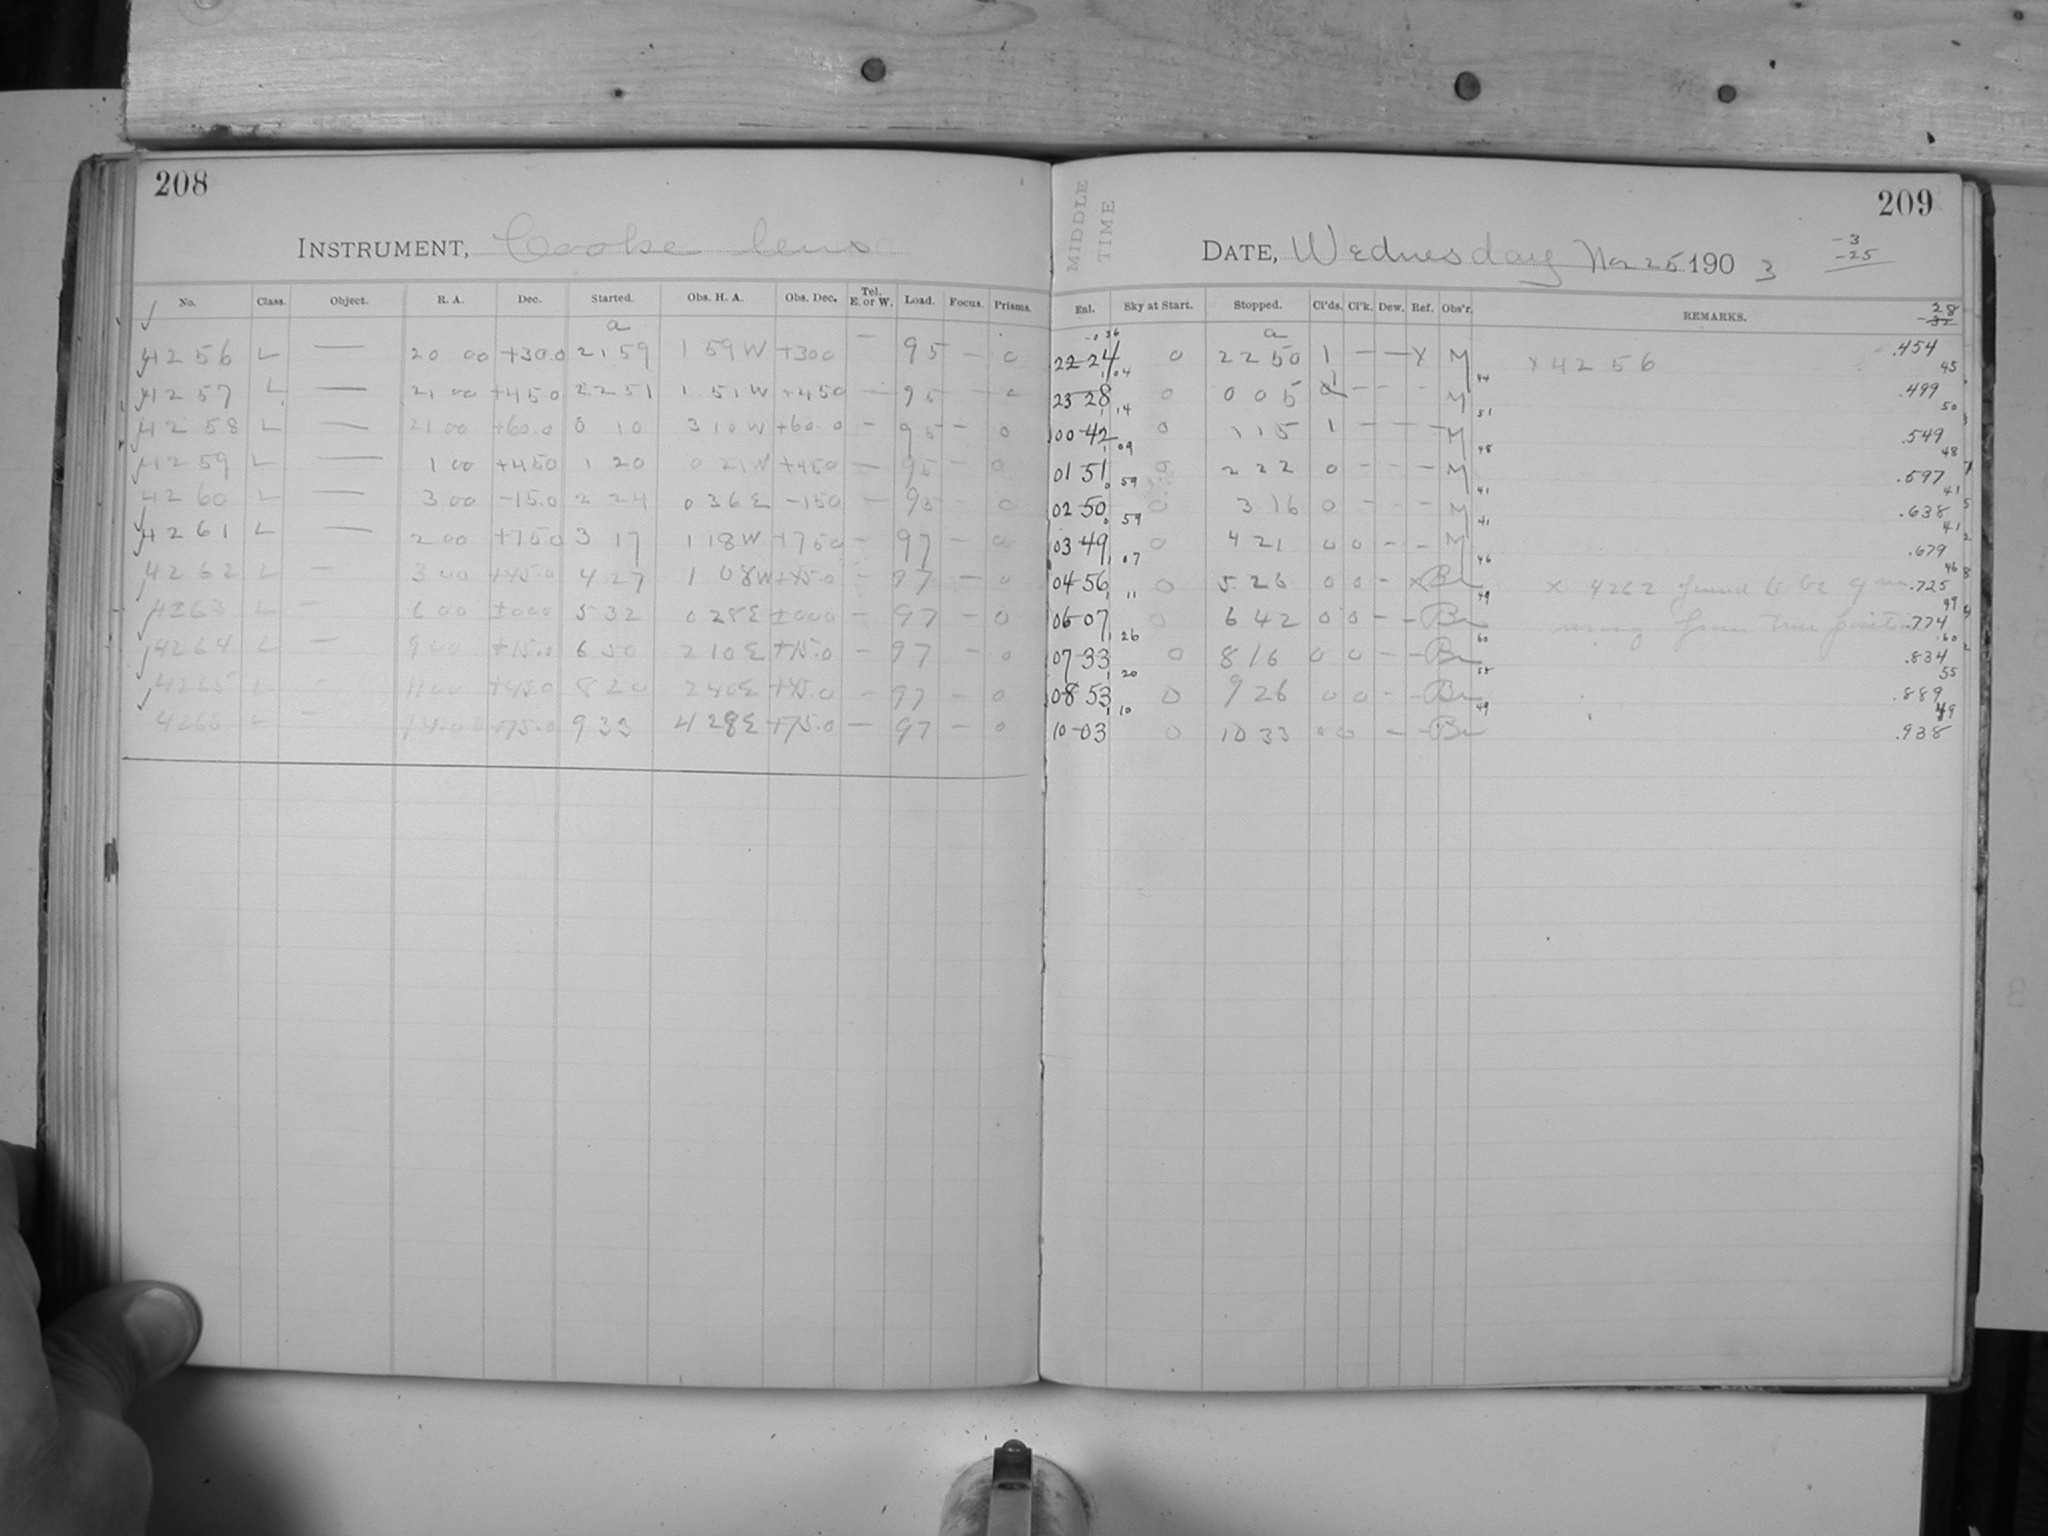 208
INSTRUMENT, Cooke lens
No. Class. Object. R. A. Dec. Started. Obs. H. A. Obs. Dec. Tel. E. or W. Load. Focus. Prisms.
a
4256 L — 20 00 +30.0 21 59 1 59 W +300 — 95 — 0
4257 L — 21 00 +45.0 22 51 1 51 W +450 — 95 — 0
4258 L — 21 00 +60.0 0 10 3 10 W +60.0 — 95 — 0
4259 L — 1 00 +450 1 20 0 21 W +450 — 95 — 0
4260 L — 3 00 -15.0 2 24 0 36 E -150 — 95 — 0
4261 L — 2 00 +75.0 3 17 1 18 W +750 — 97 — 0
4262 L — 3 00 +45.0 4 27 1 08 W +45.0 — 97 — 0
4263 L — 6 00 ±000 5 32 0 28 E ±000 — 97 — 0
4264 L — 9 00 +15.0 6 50 2 10 E +15.0 — 97 — 0
4265 L — 11 00 +45.0 8 20 2 40 E +45.0 — 97 — 0
4266 L — 14.00 +75.0 9 33 4 28 E +75.0 — 97 — 0
209
MIDDLE TIME
DATE, Wednesday Nov 25 1903
-3
-25
Enl. Sky at Start. Stopped. Cl'ds. Cl'k. Dew. Ref. Obs'r. REMARKS.
28
-32
a
22 24 0 22 50 1 — — X M X 4256 .454
23 28 0 0 05 — — - M .499
00 42 0 1 15 1 — — — M .549
01 51 0 2 22 0 - - - M .597
02 50 0 3 16 0 - - - M .638
03 49 0 4 21 0 0 - - M .679
04 56 0 5 26 0 0 - X Br X 4262 found to be .725
06 07 0 6 42 0 0 - - Br from true .774
07 33 0 8 16 0 0 - - Br .834
08 53 0 9 26 0 0 - - Br .889
10 03 0 10 33 0 0 - - Br .938